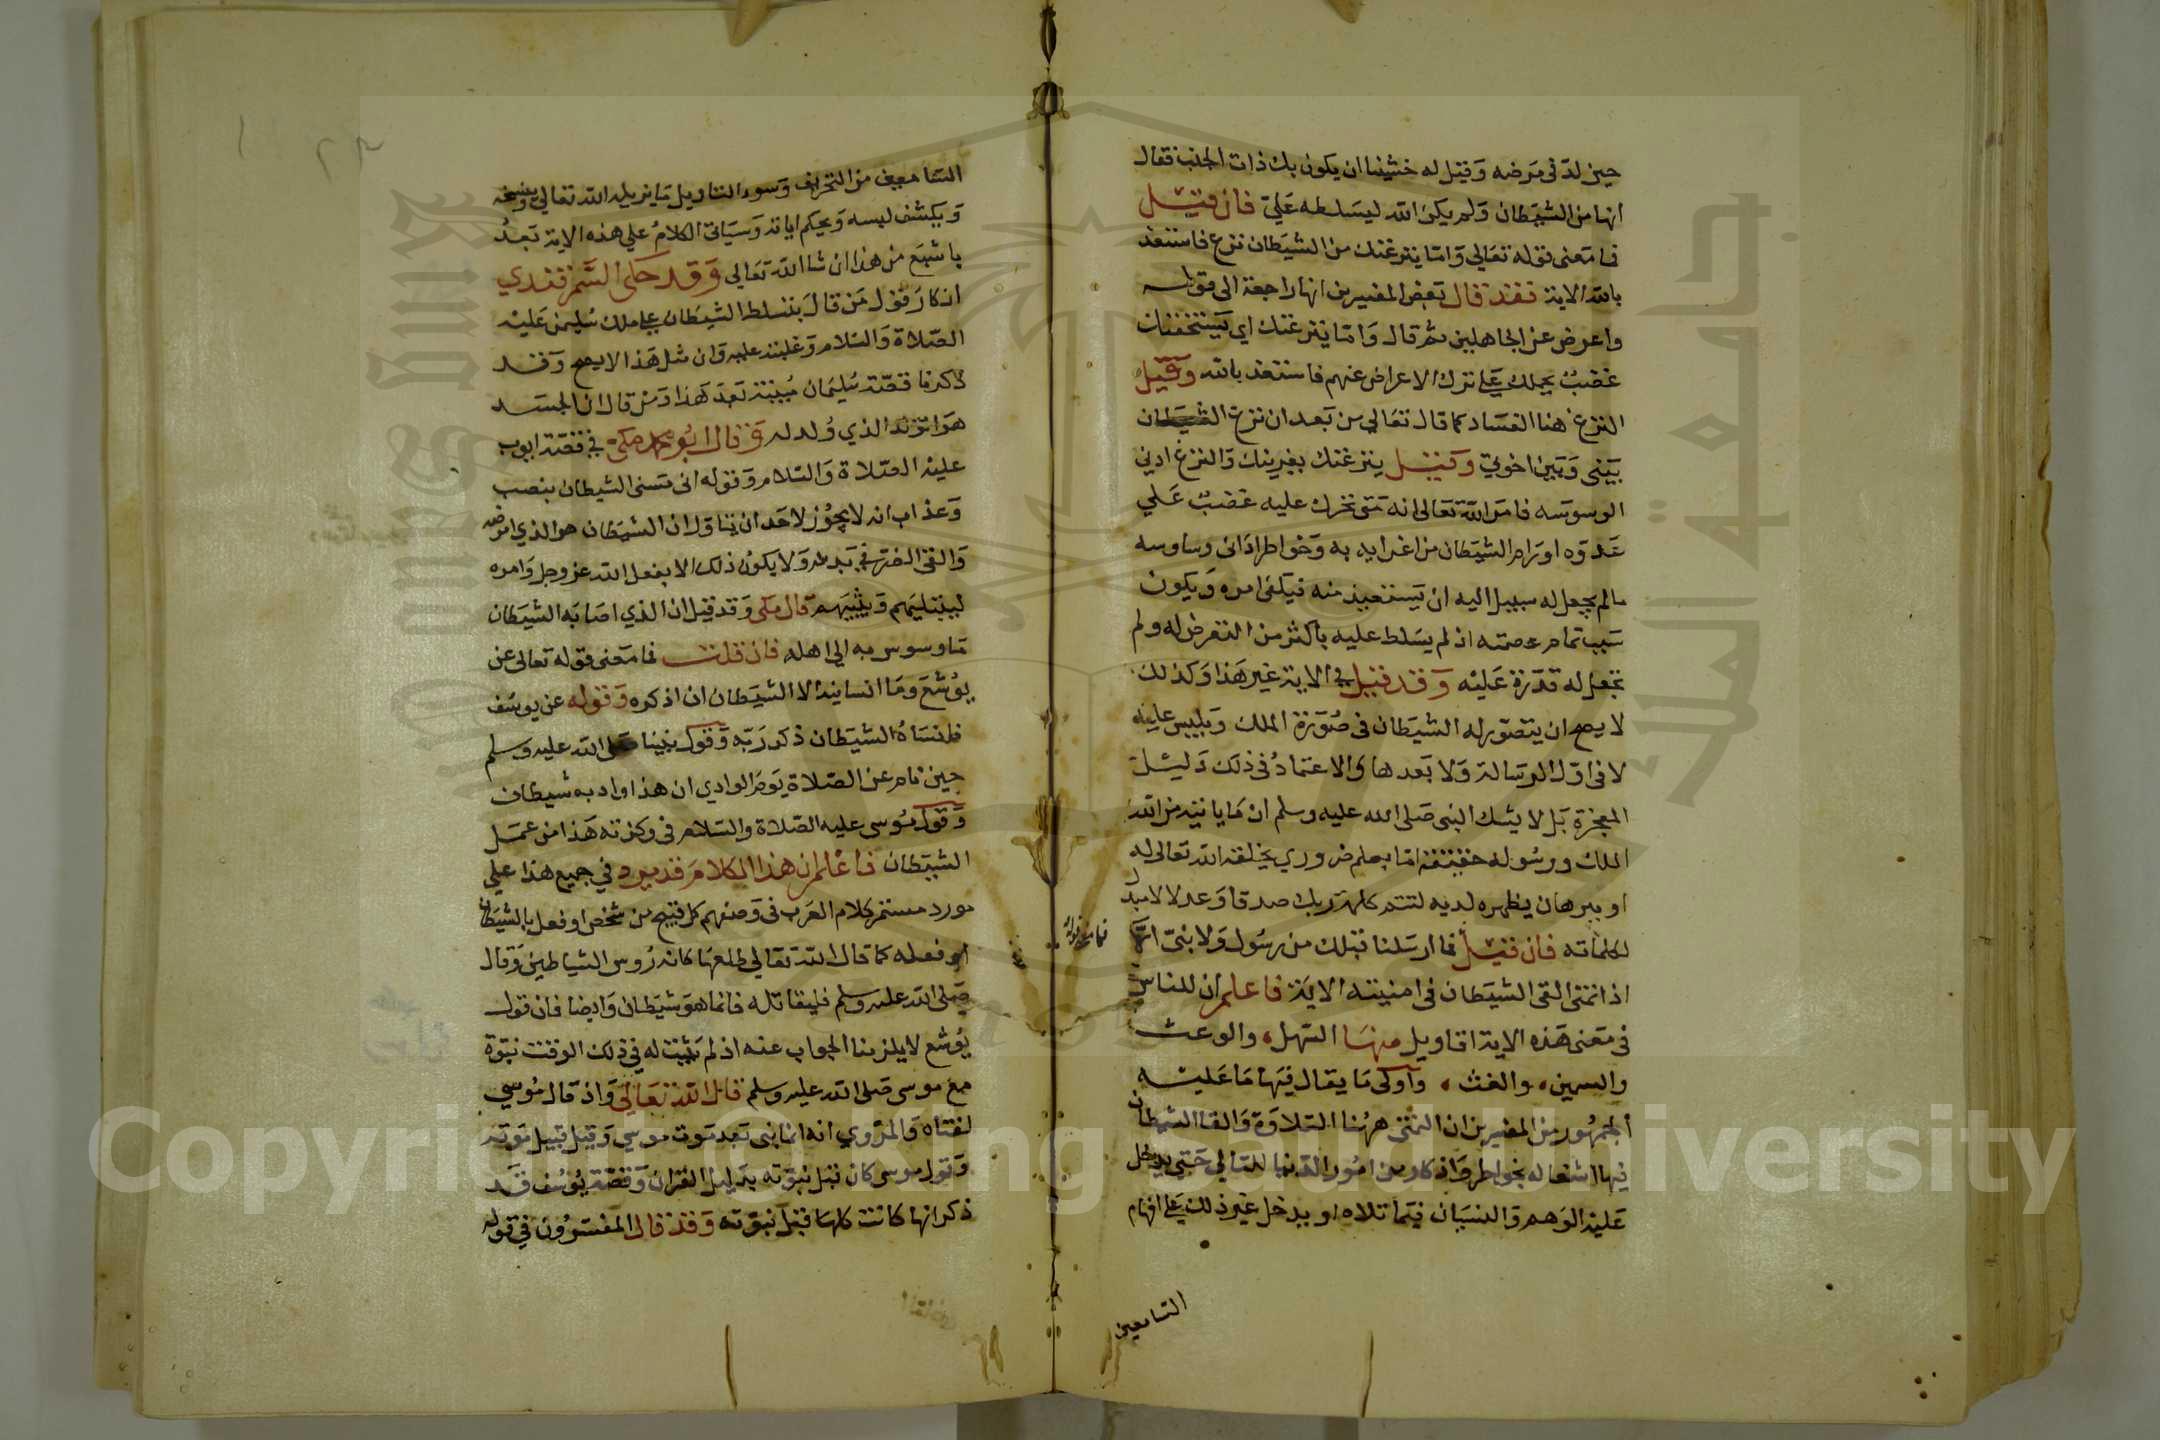 حين لد في مرضه وقيل له خشينا ان يكون بك ذات الجنب فقال
انها من الشيطان ولم يكن الله ليسلطه علي فان قيل
فما معنى قوله تعالى واما ينزغنك من الشيطان نزغ فاستعذ
بالله الاية فقد قال بعض المفسرين انها راجعة الى قوله
واعرض عن الجاهلين ثم قال واما ينزغنك اي يستخفنك
غضب يحملك على ترك الاعراض عنهم فاستعذ بالله وقيل
النزغ هنا الفساد كما قال تعالى من بعد ان نزغ الشيطان
بيني وبين اخوتي وقيل ينزغنك يغرينك والنزغ ادنى
الوسوسه فامر الله تعالى انه متى تحرك عليه غضب على
عدوه او رام الشيطان من اغرايه به وخواطر ادانى وساوسه
مالم يجعل له سبيل اليه ان يستعيذ منه فيكفى امره ويكون
سبب تمام عصمته اذ لم يسلط عليه باكثر من التعرض له ولم
تجعل له قدرة عليه وقد قيل في الاية غير هذا وكذلك
لا يصح ان يتصور له الشيطان في صورة الملك ويلبس عليه
لا في اول الرسالة ولا بعدها والاعتماد في ذلك دليل
المعجزة بل لا يشك النبي صلى الله عليه وسلم ان ما ياتيه من الله
الملك ورسوله حقيقة اما بعلم ضروري يخلقه الله تعالى له
او ببرهان يظهره لديه لتتم كلمة ربك صدقا وعدلا لا مبدل
لكلماته فان قيل فما ارسلنا قبلك من رسول ولا نبي الا
فما معنى قوله
اذا تمنى القى الشيطان في امنيته الاية فاعلم ان للناس
في معنى هذه الاية اقاويل منها السهل والوعث
والسمين والغث واولى ما يقال فيها ما عليه
الجمهور من المفسرين ان التمني ههنا التلاوة والقا الشيطان
فيها اشغاله بخواطر واذكار من امور الدنيا للتالي حتى يدخل
عليه الوهم والنسيان فيما تلاه او يدخل غير ذلك على افهام
السامعين
السامعين من التحريف وسوء التاويل ما يزيله الله تعالى وينسخه
ويكشف لبسه ويحكم اياته وسياتي الكلام على هذه الاية بعد
باشبع من هذا ان شا الله تعالى وقد حكى السمرقندي
انكار قول من قال بتسلط الشيطان على ملك سليمن عليه
الصلاة والسلام وغلبته عليه وان مثل هذا لا يصح وقد
ذكرنا قصة سليمان مبينة بعد هذا ومن قال ان الجسد
هو الولد الذي ولد له وقال ابو محمد مكي في قصة ايوب
عليه الصلاة والسلام وقوله اني مسني الشيطان بنصب
وعذاب انه لا يجوز لاحد ان يتاول ان الشيطان هو الذي امرضه
والقى الضر في بدنه ولا يكون ذلك الا بفعل الله عز وجل وامره
ليبتليهم ويثيبهم قال مكي وقد قيل ان الذي اصابه الشيطان
ما وسوس به الى اهله فان قلت فما معنى قوله تعالى عن
يوشع وما انسانيه الا الشيطان ان اذكره وقوله عن يوسف
فانساه الشيطان ذكر ربه وقول نبينا صلى الله عليه وسلم
حين نام عن الصلاة يوم الوادي ان هذا واد به شيطان
وقول موسى عليه الصلاة والسلام في وكزته هذا من عمل
الشيطان فاعلم ان هذا الكلام قد يرد في جميع هذا على
مورد مستمر كلام العرب في وصفهم كل قبيح من شخص او فعل بالشيطان
او فعله كما قال الله تعالى طلعها كانه رؤس الشياطين وقال
صلى الله عليه وسلم فليقاتله فانما هو شيطان وايضا فان قول
يوشع لا يلزمنا الجواب عنه اذ لم يثبت له في ذلك الوقت نبوة
مع موسى صلى الله عليه وسلم قال الله تعالى واذ قال موسى
لفتاه والمروي انه انما نبي بعد موت موسى وقيل قبيل موته
وقول موسى كان قبل نبوته بدليل القران وقصة يوسف قد
ذكر انها كانت كلها قبل نبوته وقد قال المفسرون في قوله
Copyright © King Saud University